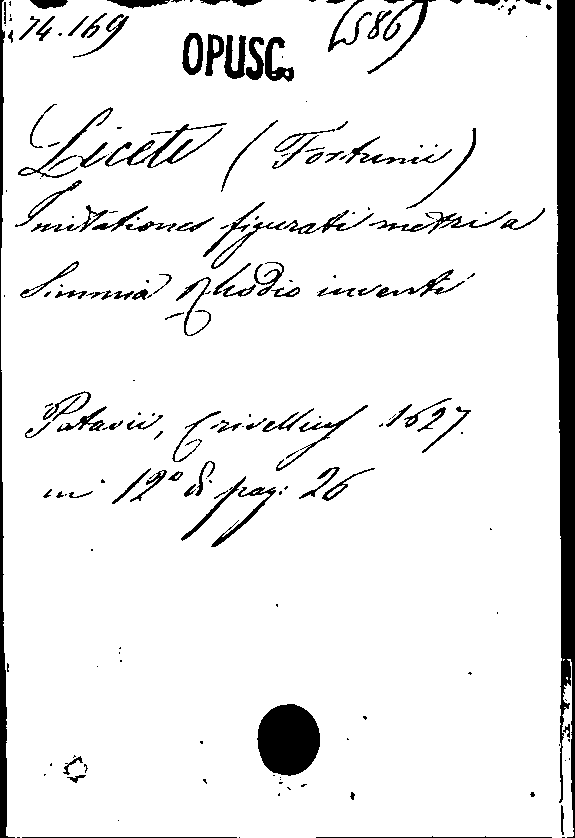 74.169 (586)
OPUSC.
Liceti (Fortunii)
Imitationes figurati metri a
Simmia Rhodio inventi
Patavii, Crivellius 1627.
in 12º di pag: 26